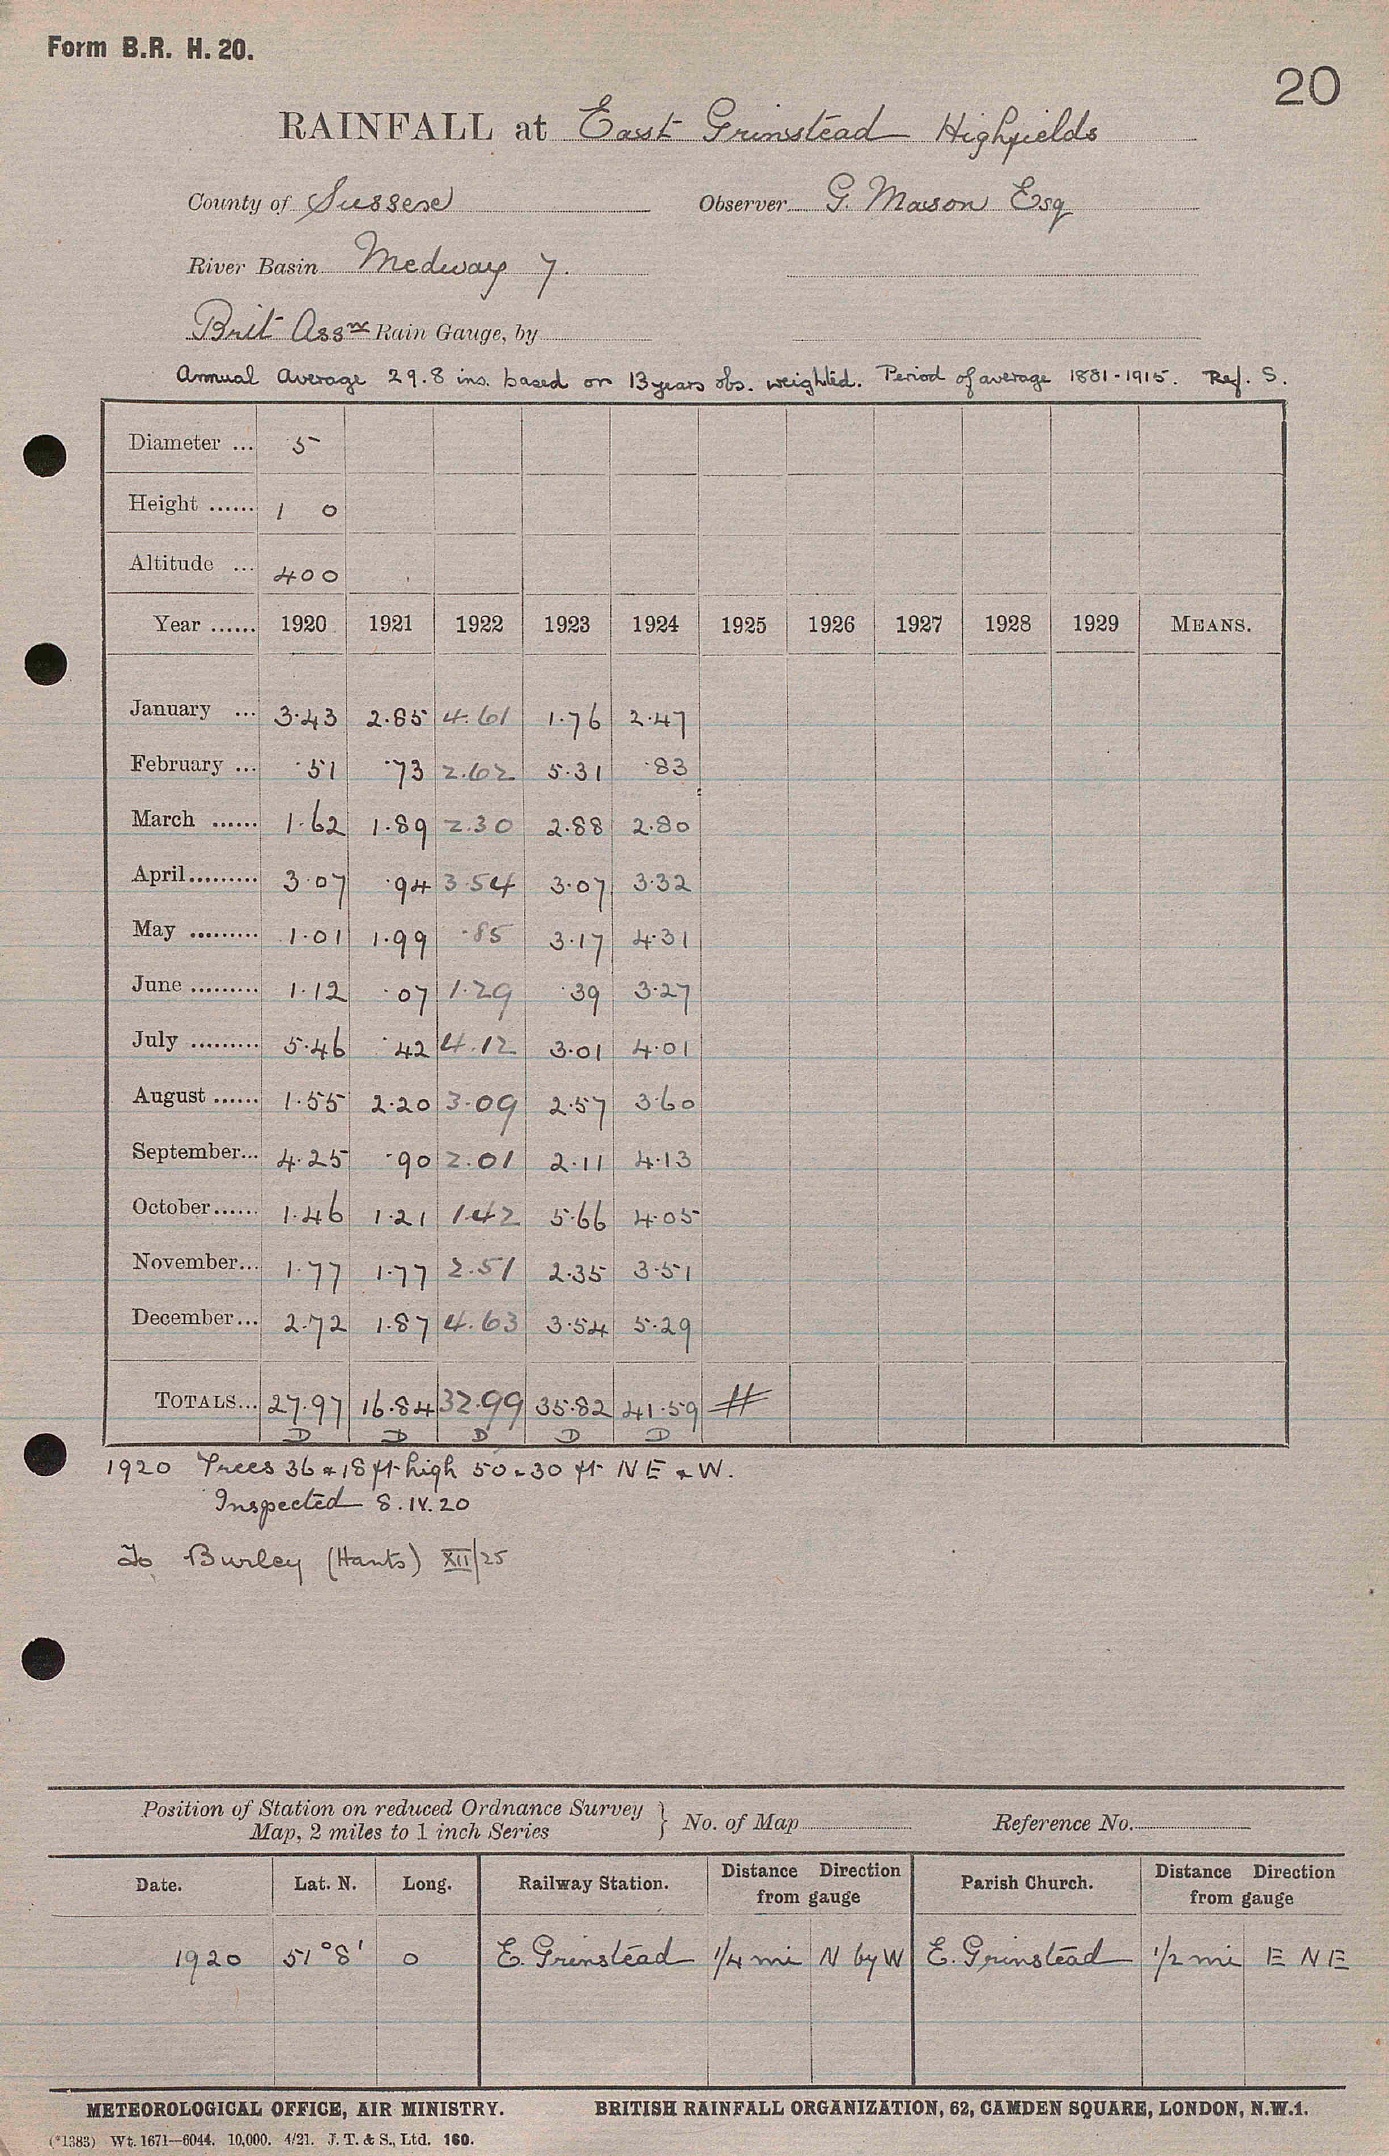 Form B.R. H. 20.
20
RAINFALL at East Grinstead Highfields
County of Sussex Observer G. Mason Esq
River Basin Medway 7.
Brit Assn Rain Gauge, by
Annual Average 29.8 ins. based on 13 years obs. weighted. Period of average 1881-1915. Ref. S.
Diameter ... 5
Height ...... 1 0
Altitude ... 400
Year ...... 1920 1921 1922 1923 1924 1925 1926 1927 1928 1929 MEANS.
January ... 3.43 2.85 4.61 1.76 2.47
February ... .51 .73 2.62 5.31 .83
March ...... 1.62 1.89 2.30 2.88 2.80
April ......... 3.07 .94 3.54 3.07 3.32
May ......... 1.01 1.99 .85 3.17 4.31
June ......... 1.12 .07 1.29 .39 3.27
July ......... 5.46 .42 4.12 3.01 4.01
August ...... 1.55 2.20 3.09 2.57 3.60
September... 4.25 .90 2.01 2.11 4.13
October...... 1.46 1.21 1.42 5.66 4.05
November... 1.77 1.77 2.51 2.35 3.51
December... 2.72 1.87 4.63 3.54 5.29
TOTALS... 27.97 16.84 32.99 35.82 41.59
D D D D D
1920 Trees 36 & 18 ft high 50 & 30 ft N E & W.
Inspected 8.IV.20
To Burley (Hants) XII/25
Position of Station on reduced Ordnance Survey
Map, 2 miles to 1 inch Series } No. of Map Reference No.
Date. Lat. N. Long. Railway Station. Distance Direction from gauge Parish Church. Distance Direction from gauge
1920 51°8' 0 E. Grinstead 1/4 mi N by W E. Grinstead 1/2 mi E N E
METEOROLOGICAL OFFICE, AIR MINISTRY. BRITISH RAINFALL ORGANIZATION, 62, CAMDEN SQUARE, LONDON, N.W.1.
(*1383) Wt. 1671—6044. 10,000. 4/21. J. T. & S., Ltd. 160.